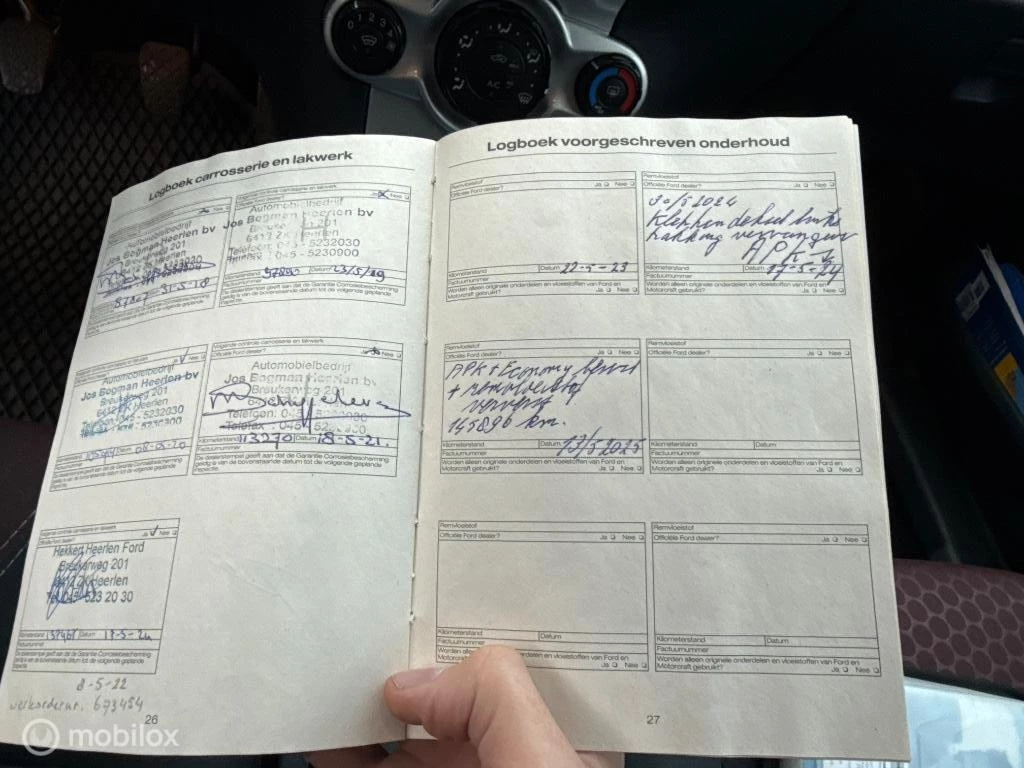 Logboek carrosserie en lakwerk
Automobielbedrijf
Jos Bogman Heerlen bv
Breukerweg 201
Heerlen
31-5-18
Volgende controle carrosserie en lakwerk
Officiële Ford dealer? Ja Nee
Automobielbedrijf
Jos Bogman Heerlen bv
201
6412 ZK Heerlen
Telefoon: 045 - 5232030
Telefax : 045 - 5230900
Kilometerstand 97890 Datum 23/5/19
Factuurnummer
De dealerstempel geeft aan dat de Garantie Corrosiebescherming
geldig is van de bovenstaande datum tot de volgende geplande
inspectie.
Automobielbedrijf
Jos Bogman Heerlen bv
Breukerweg 201
6412 ZK Heerlen
Telefoon: 045 - 5232030
Datum 08-05-20
Factuurnummer
Volgende controle carrosserie en lakwerk
Officiële Ford dealer? Ja Nee
Automobielbedrijf
Jos Bogman Heerlen bv
Breukerweg 201
Telefoon: 045 - 5232030
Telefax : 045 - 5230900
Kilometerstand 113270 Datum 18-5-21
Factuurnummer
De dealerstempel geeft aan dat de Garantie Corrosiebescherming
geldig is van de bovenstaande datum tot de volgende geplande
inspectie.
Volgende controle carrosserie en lakwerk
Officiële Ford dealer? Ja Nee
Hekkert Heerlen Ford
Breukerweg 201
6412 ZK Heerlen
Tel. 045 - 523 20 30
Kilometerstand Datum
Factuurnummer
De dealerstempel geeft aan dat de Garantie Corrosiebescherming
geldig is van de bovenstaande datum tot de volgende geplande
inspectie.
8-5-22
werkordernr. 673454
26
Logboek voorgeschreven onderhoud
Remvloeistof
Officiële Ford dealer? Ja Nee
Kilometerstand Datum 22-5-23
Factuurnummer
Worden alleen originele onderdelen en vloeistoffen van Ford en
Motorcraft gebruikt? Ja Nee
Remvloeistof
Officiële Ford dealer? Ja Nee
30/5 2024
Kleppendeksel
pakking vervangen
APK
Kilometerstand Datum 17-5-24
Factuurnummer
Worden alleen originele onderdelen en vloeistoffen van Ford en
Motorcraft gebruikt? Ja Nee
Remvloeistof
Officiële Ford dealer? Ja Nee
APK + Economy beurt
+ remvloeistof
ververst
145896 km.
Kilometerstand Datum 13/5 2025
Factuurnummer
Worden alleen originele onderdelen en vloeistoffen van Ford en
Motorcraft gebruikt? Ja Nee
Remvloeistof
Officiële Ford dealer? Ja Nee
Kilometerstand Datum
Factuurnummer
Worden alleen originele onderdelen en vloeistoffen van Ford en
Motorcraft gebruikt? Ja Nee
Remvloeistof
Officiële Ford dealer? Ja Nee
Kilometerstand Datum
Factuurnummer
Worden alleen onderdelen en vloeistoffen van Ford en
Ja Nee
Remvloeistof
Officiële Ford dealer? Ja Nee
Kilometerstand Datum
Factuurnummer
Worden alleen originele onderdelen en vloeistoffen van Ford en
Motorcraft gebruikt? Ja Nee
27
0 1 2 3 4
A/C
mobilox